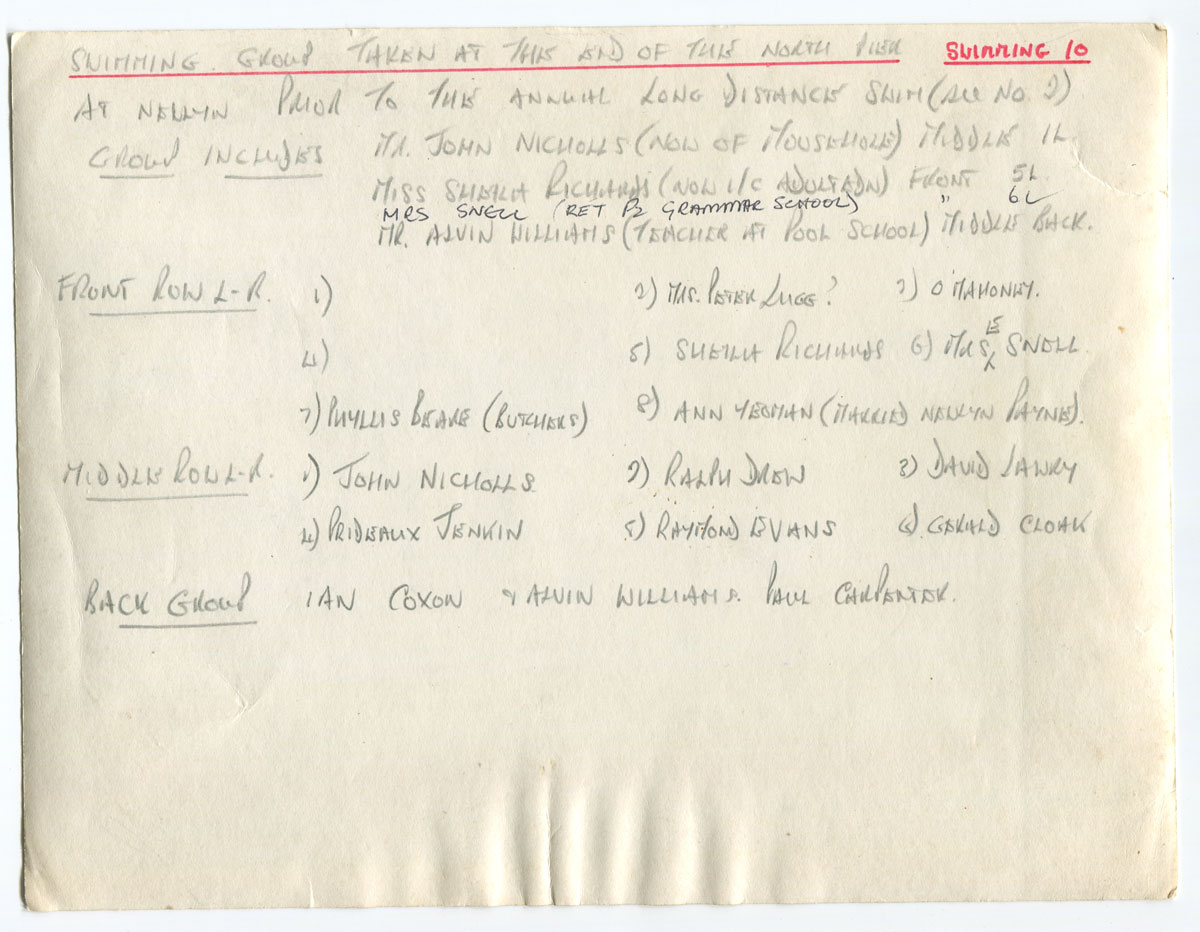 SWIMMING. GROUP TAKEN AT THE END OF THE NORTH PIER SWIMMING 10
AT NEWLYN PRIOR TO THE ANNUAL LONG DISTANCE SWIM (SEE NO. 2)
GROUP INCLUDES MR. JOHN NICHOLLS (NOW OF MOUSEHOLE) MIDDLE 1L.
MISS SHEILA RICHARDS (NOW I/C ADULT EDN) FRONT 5L
MRS SNELL (RET PZ GRAMMAR SCHOOL) " 6L
MR. ALVIN WILLIAMS (TEACHER AT POOL SCHOOL) MIDDLE BACK.
FRONT ROW L-R. 1) 2) MRS. PETER LUGG? 3) O'MAHONEY.
4) 5) SHEILA RICHARDS 6) MRS E SNELL
7) PHYLLIS BEARE (BUTCHERS) 8) ANN YEOMAN (MARRIED NEWLYN PAYNE).
MIDDLE ROW L-R. 1) JOHN NICHOLLS. 2) RALPH DREW 3) DAVID LAWRY
4) PRIDEAUX JENKIN 5) RAYMOND EVANS 6) GERALD CLOAK
BACK GROUP IAN COXON & ALVIN WILLIAMS. PAUL CARPENTER.